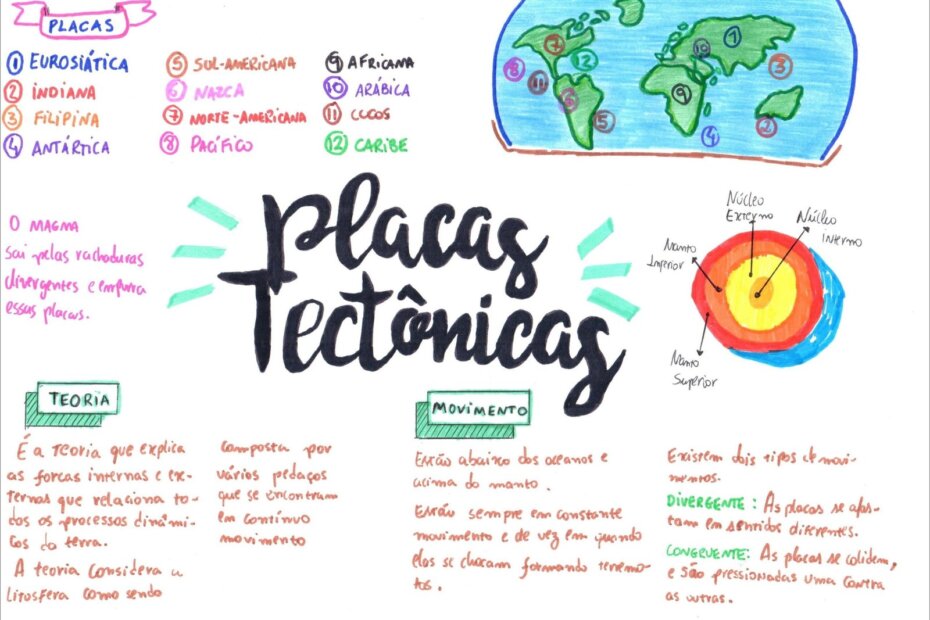 PLACAS
1 EUROSIÁTICA
2 INDIANA
3 FILIPINA
4 ANTÁRTICA
5 SUL-AMERICANA
6 NAZCA
7 NORTE-AMERICANA
8 PACÍFICO
9 AFRICANA
10 ARÁBICA
11 COCOS
12 CARIBE
7
12
8
11
6
5
10
1
3
9
4
2
O MAGMA
sai pelas rachaduras
divergentes e empurra
essas placas.
Placas
Tectônicas
Núcleo
Externo
Núcleo
interno
Manto
Inferior
Manto
Superior
TEORIA
É a teoria que explica
as forcas internas e ex-
ternas que relaciona to-
dos os processos dinâmi-
cos da terra.
A teoria considera a
litosfera como sendo
composta por
vários pedaços
que se encontram
em contínuo
movimento
MOVIMENTO
Estão abaixo dos oceanos e
acima do manto.
Estão sempre em constante
movimento e de vez em quando
elas se chocam formando terremo-
tos.
Existem dois tipos de movi-
mentos.
DIVERGENTE: As placas se afas-
tam em sentidos diferentes.
CONGRUENTE: As placas se colidem,
e são pressionadas uma contra
as outras.